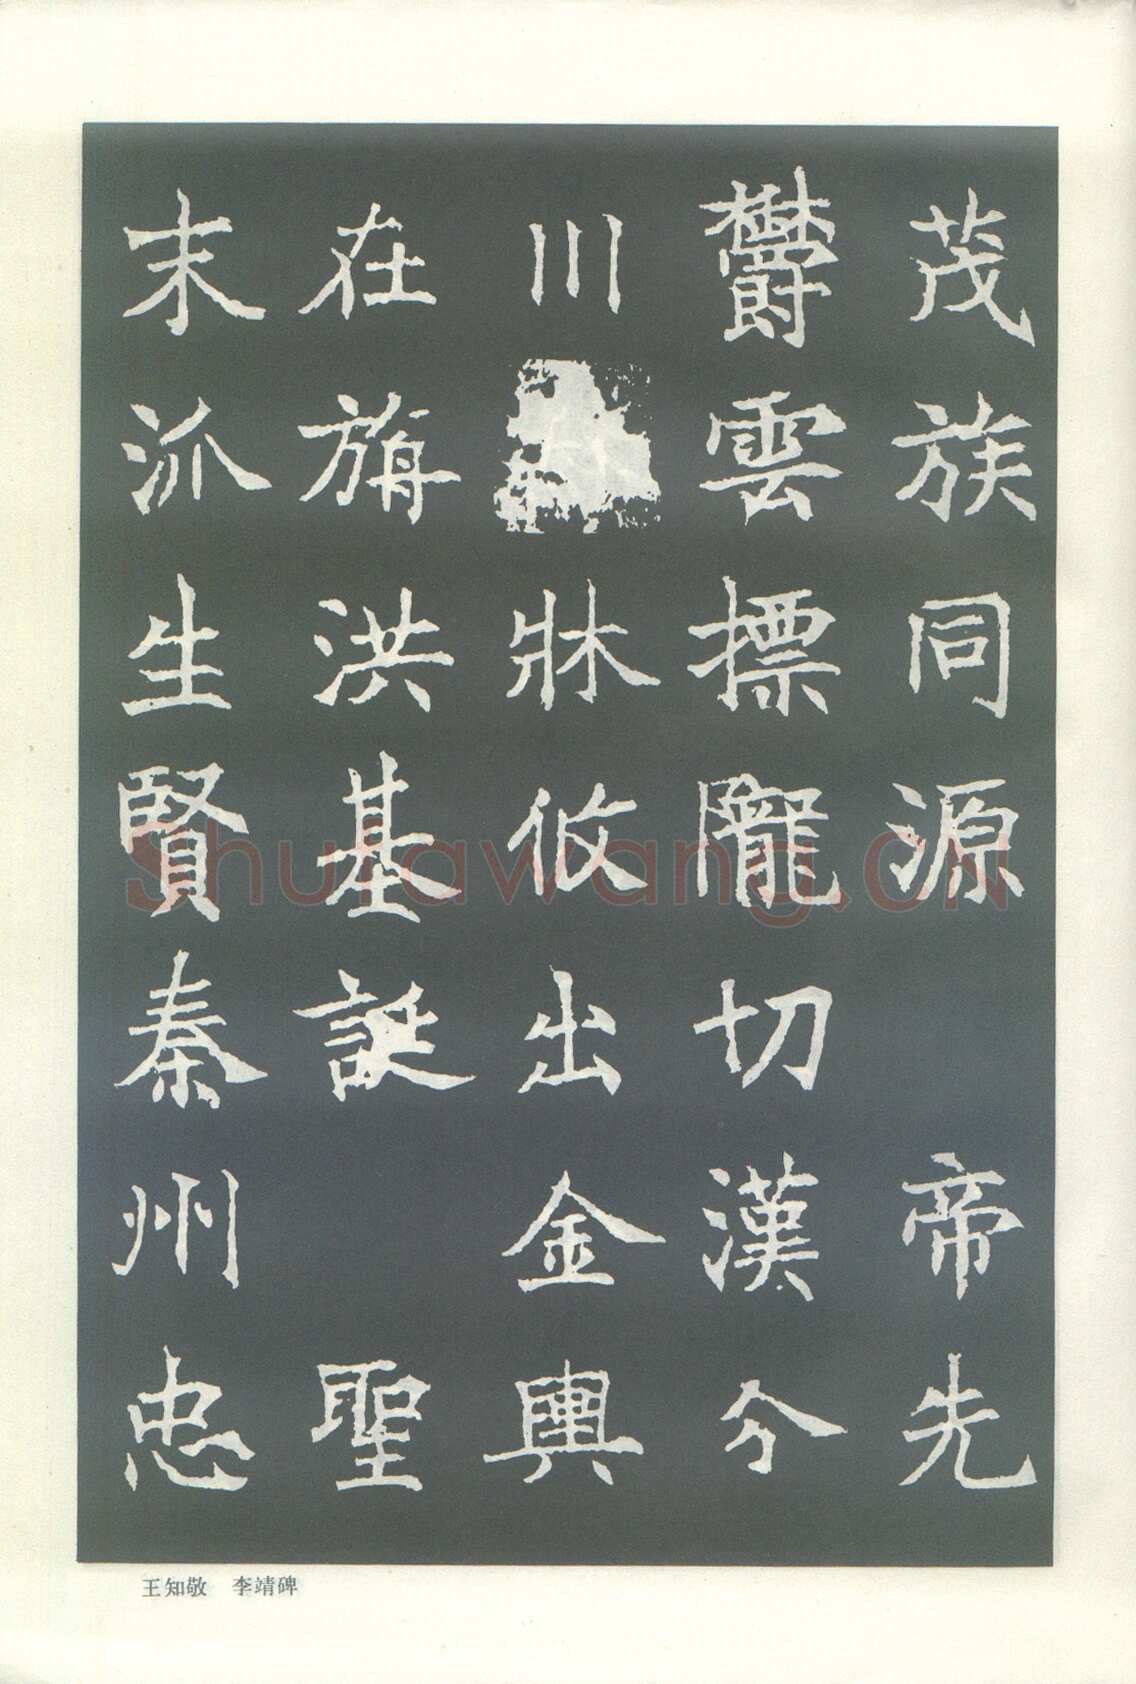 茂族同源帝先
欝雲摽隴切漢分
川牀攸出金輿
在旃洪基誕聖
末派生賢秦州忠
王知敬 李靖碑
Shufawang.cn